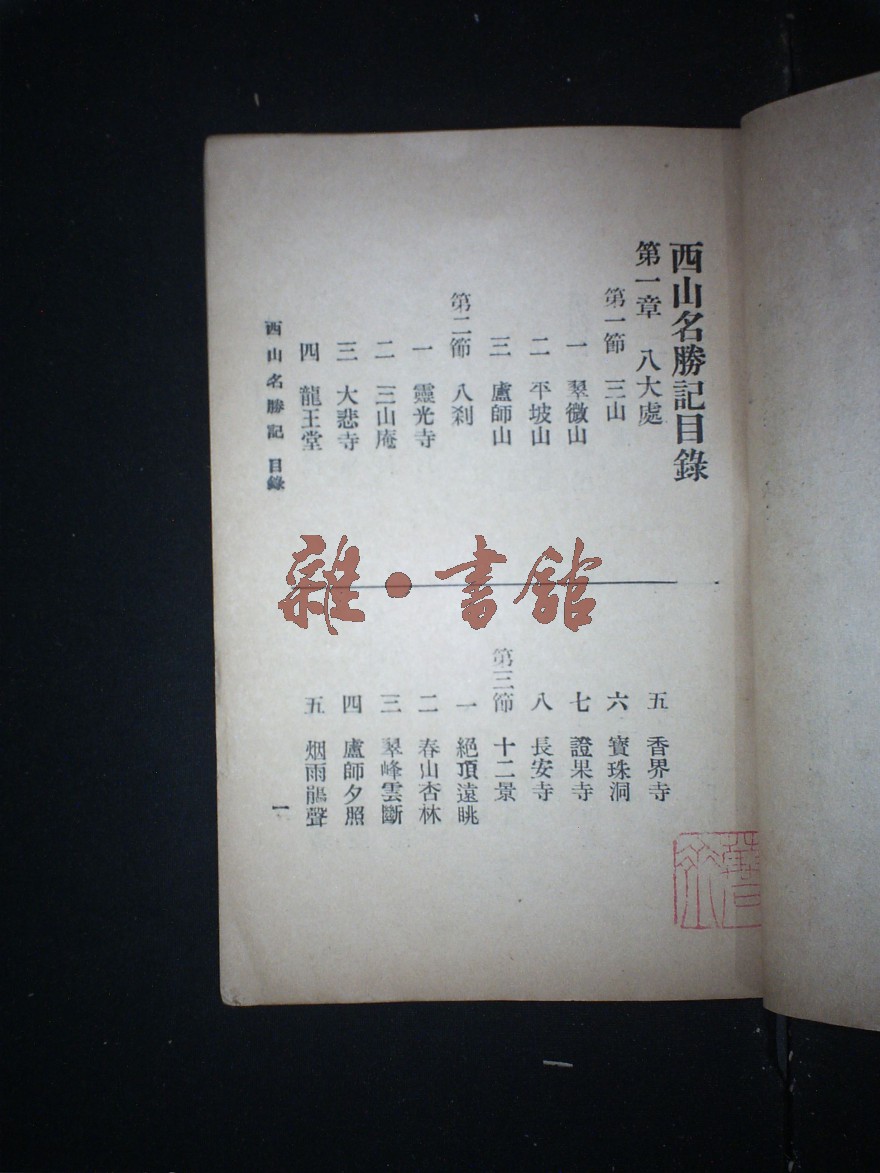 西山名勝記目錄
第一章 八大處
第一節 三山
一 翠微山
二 平坡山
三 盧師山
第二節 八刹
一 靈光寺
二 三山庵
三 大悲寺
四 龍王堂
五 香界寺
六 寶珠洞
七 證果寺
八 長安寺
第三節 十二景
一 絕頂遠眺
二 春山杏林
三 翠峰雲斷
四 盧師夕照
五 烟雨鵑聲
西山名勝記 目錄
一
雜・書館